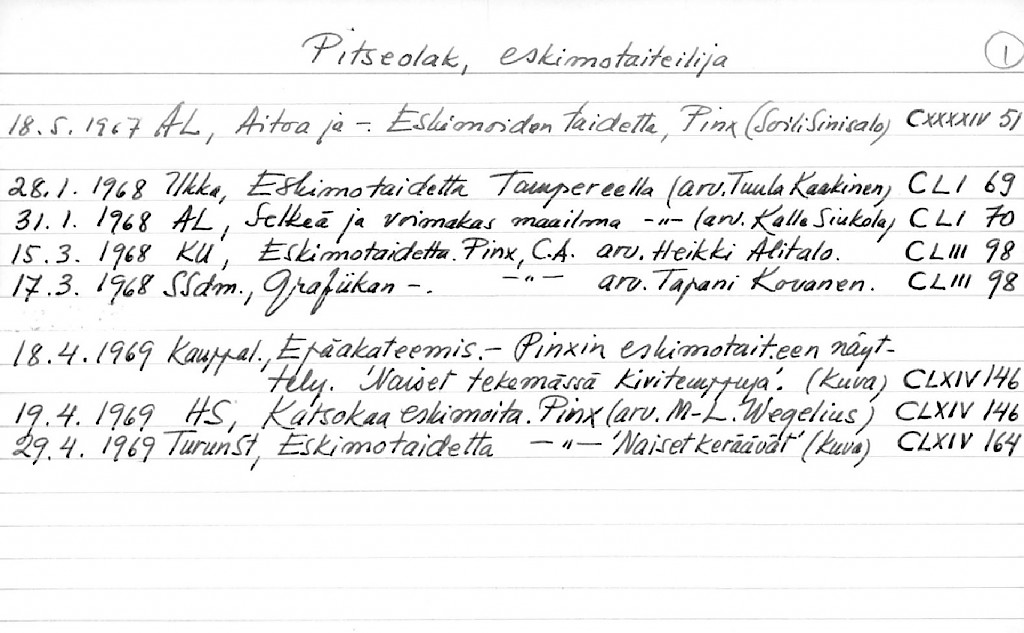 Pitseolak, eskimotaiteilija 1
18.5.1967 AL, Aitoa ja -. Eskimoiden taidetta, Pinx (Soili Sinisalo) CXXXXIV 51
28.1.1968 Ilkka, Eskimotaidetta Tampereella (arv. Tuula Kaakinen) CLI 69
31.1.1968 AL, Selkeä ja voimakas maailma -"- (arv. Kalle Siukola) CLI 70
15.3.1968 KU, Eskimotaidetta. Pinx, C.A. arv. Heikki Alitalo. CLIII 98
17.3.1968 SSdm., Grafiikan -. -"- arv. Tapani Kovanen. CLIII 98
18.4.1969 Kauppal., Epäakateemis. - Pinxin eskimotait.een näyt-
tely. 'Naiset tekemässä kivitemppuja'. (kuva) CLXIV 146
19.4.1969 HS, Katsokaa eskimoita. Pinx (arv. M-L. Wegelius) CLXIV 146
29.4.1969 TurunSt, Eskimotaidetta -"- 'Naiset keräävät' (kuva) CLXIV 164